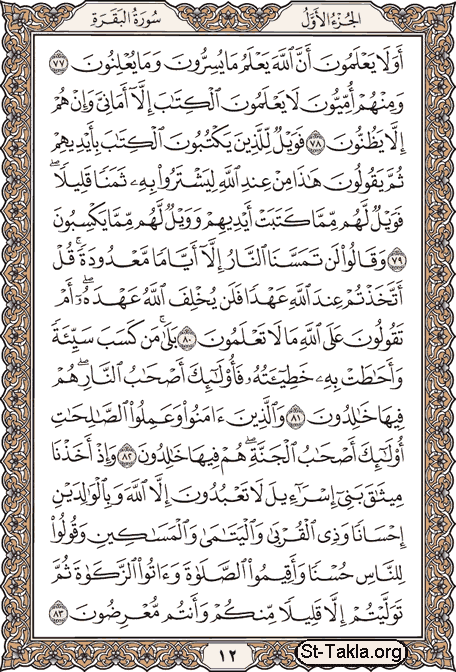 الجزء الأول
سورة البقرة
أَوَلَا يَعْلَمُونَ أَنَّ ٱللَّهَ يَعْلَمُ مَا يُسِرُّونَ وَمَا يُعْلِنُونَ ٧٧
وَمِنْهُمْ أُمِّيُّونَ لَا يَعْلَمُونَ ٱلْكِتَٰبَ إِلَّآ أَمَانِىَّ وَإِنْ هُمْ
إِلَّا يَظُنُّونَ ٧٨ فَوَيْلٌ لِّلَّذِينَ يَكْتُبُونَ ٱلْكِتَٰبَ بِأَيْدِيهِمْ
ثُمَّ يَقُولُونَ هَٰذَا مِنْ عِندِ ٱللَّهِ لِيَشْتَرُوا۟ بِهِۦ ثَمَنًا قَلِيلًا ۖ
فَوَيْلٌ لَّهُم مِّمَّا كَتَبَتْ أَيْدِيهِمْ وَوَيْلٌ لَّهُم مِّمَّا يَكْسِبُونَ
٧٩ وَقَالُوا۟ لَن تَمَسَّنَا ٱلنَّارُ إِلَّآ أَيَّامًا مَّعْدُودَةً ۚ قُلْ
أَتَّخَذْتُمْ عِندَ ٱللَّهِ عَهْدًا فَلَن يُخْلِفَ ٱللَّهُ عَهْدَهُۥٓ ۖ أَمْ
تَقُولُونَ عَلَى ٱللَّهِ مَا لَا تَعْلَمُونَ ٨٠ بَلَىٰ ۚ مَن كَسَبَ سَيِّئَةً
وَأَحَٰطَتْ بِهِۦ خَطِيٓـَٔتُهُۥ فَأُو۟لَٰٓئِكَ أَصْحَٰبُ ٱلنَّارِ ۖ هُمْ
فِيهَا خَٰلِدُونَ ٨١ وَٱلَّذِينَ ءَامَنُوا۟ وَعَمِلُوا۟ ٱلصَّٰلِحَٰتِ
أُو۟لَٰٓئِكَ أَصْحَٰبُ ٱلْجَنَّةِ ۖ هُمْ فِيهَا خَٰلِدُونَ ٨٢ وَإِذْ أَخَذْنَا
مِيثَٰقَ بَنِىٓ إِسْرَٰٓءِيلَ لَا تَعْبُدُونَ إِلَّا ٱللَّهَ وَبِٱلْوَٰلِدَيْنِ
إِحْسَانًا وَذِى ٱلْقُرْبَىٰ وَٱلْيَتَٰمَىٰ وَٱلْمَسَٰكِينِ وَقُولُوا۟
لِلنَّاسِ حُسْنًا وَأَقِيمُوا۟ ٱلصَّلَوٰةَ وَءَاتُوا۟ ٱلزَّكَوٰةَ ثُمَّ
تَوَلَّيْتُمْ إِلَّا قَلِيلًا مِّنكُمْ وَأَنتُم مُّعْرِضُونَ ٨٣
١٢
St-Takla.org